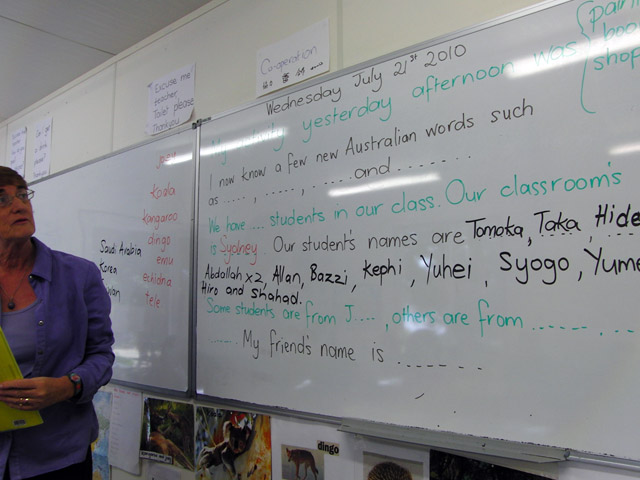 Co-operation
Excuse me
teacher,
Toilet please
Thankyou
Wednesday July 21st 2010
My activity yesterday afternoon was
I now know a few new Australian words such
as ....., ......, .....and .......
We have ... students in our class. Our classroom's
is Sydney. Our student's names are Tomoka, Taka, Hide
Abdallah x2, Allan, Bazzi, Kephi, Yuhei, Syogo, Yume
Hiro and Shahad.
Some students are from J...., others are from ...... ...
...... My friend's name is .......
koala
kangaroo
dingo
emu
echidna
Saudi Arabia
Korea
dingo